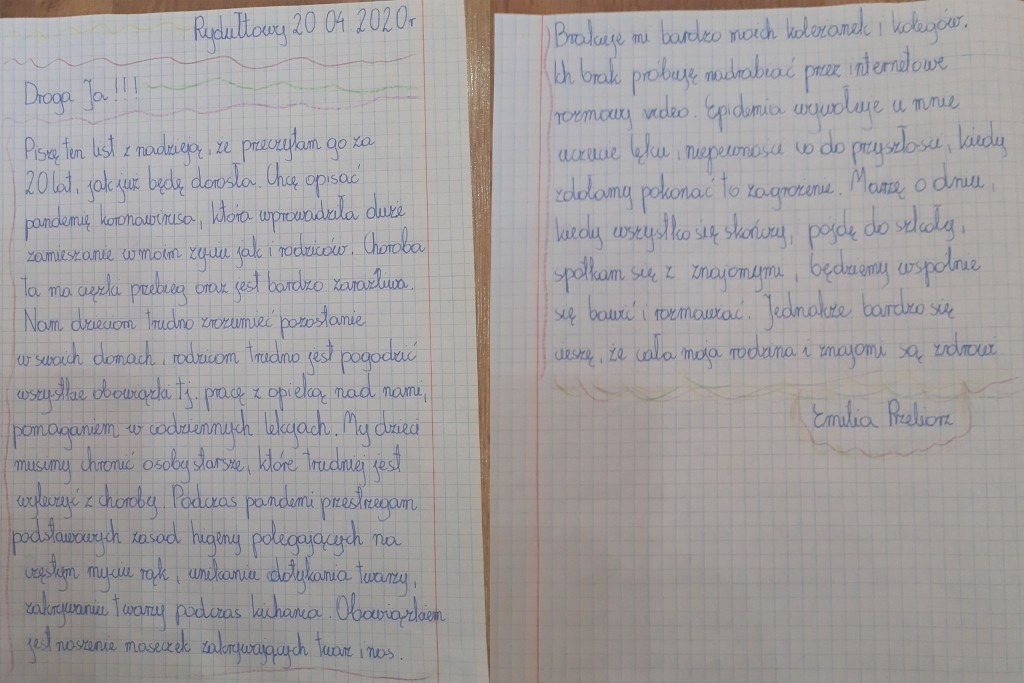 Rydułtowy 20 04 2020r
Droga Ja!!!
Piszę ten list z nadzieją, że przeczytam go za
20 lat, jak już będę dorosła. Chcę opisać
pandemię koronawirusa, która wprowadziła duże
zamieszanie w moim życiu jak i rodziców. Choroba
ta ma ciężki przebieg oraz jest bardzo zaraźliwa.
Nam dzieciom trudno zrozumieć pozostanie
w swoich domach, rodzicom trudno jest pogodzić
wszystkie obowiązki tj. pracę z opieką nad nami,
pomaganiem w codziennych lekcjach. My dzieci
musimy chronić osoby starsze, które trudniej jest
wyleczyć z choroby. Podczas pandemi przestrzegam
podstawowych zasad higieny polegających na
częstym myciu rąk, unikaniu dotykania twarzy,
zakrywaniu twarzy podczas kichania. Obowiązkiem
jest noszenie maseczek zakrywających twarz i nos.
Brakuje mi bardzo moich koleżanek i kolegów.
Ich brak próbuję nadrabiać przez internetowe
rozmowy video. Epidemia wywołuje u mnie
uczucie lęku, niepewności co do przyszłości, kiedy
zdołamy pokonać to zagrożenie. Marzę o dniu,
kiedy wszystko się skończy, pójdę do szkoły,
spotkam się z znajomymi, będziemy wspólnie
się bawić i rozmawiać. Jednakże bardzo się
cieszę, że cała moja rodzina i znajomi są zdrowi
Emilia Przeliorz